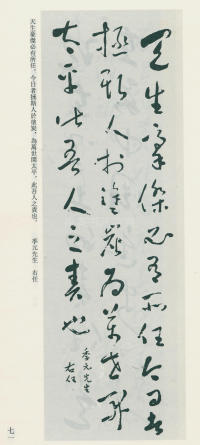 天生豪傑必有所任今日者
拯斯人於塗炭為萬世開
太平此吾人之責也
季元先生
右任
天生豪傑必有所任。今日者拯斯人於塗炭,為萬世開太平,此吾人之責也。　季元先生　右任
七一